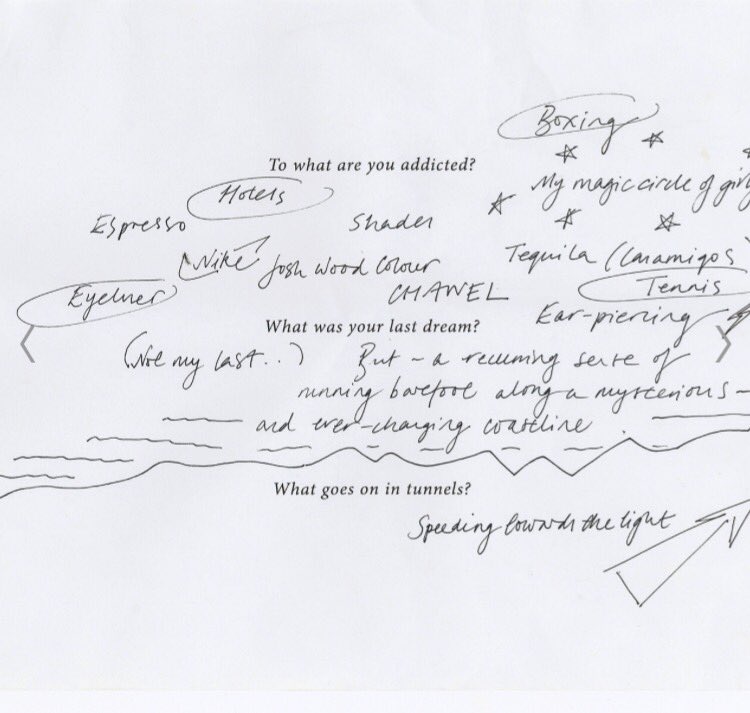 Boxing
To what are you addicted?
Hotels
My magic circle of
Espresso
Shades
Nike
Josh Wood Colour
Tequila
Eyeliner
CHANEL
Tennis
Ear-piercing
What was your last dream?
(Not my last..) But - a recurring sense of
running barefoot along a mysterious -
and ever-changing coastline
What goes on in tunnels?
Speeding towards the light